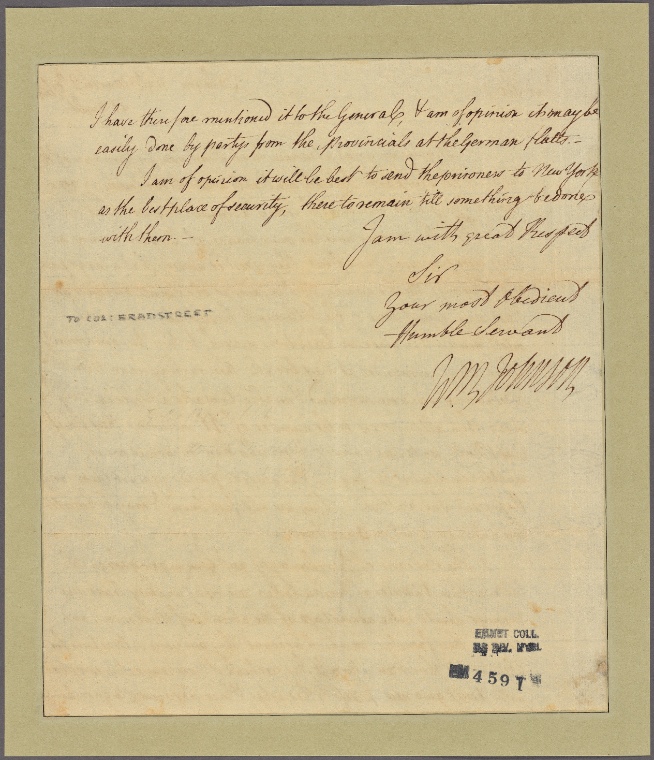 I have therefore mentioned it to the General, & am of opinion it may be
easily done by partys from the provincials at the German Flatts.-
I am of opinion it will be best to send the prisoners to New York
as the best place of security, there to remain till something be done
with them.-
I am with great Respect
Sir
Your most Obedient
Humble Servant
Wm Johnson
TO COL: BRADSTREET
EMMET COLL.
4597